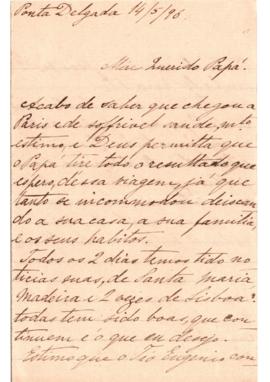 Ponta Delgada 14/5/96
Meu Querido Papá.
Acabo de saber que chegou a
Paris e de soffrivel saude, mto
estimo, e Deus permitta que
o Papá tire todo o resultado que
espero, dessa viagem, já que
tanto se incommodou deixan
do a sua casa, a sua familia,
e os seus habitos.
Todos os 2 dias temos tido no
ticias suas, de Santa Maria
Madeira e 2 vezes de Lisboa:
todas tem sido boas, que con
tinuem é o que eu desejo.
Estimo que o Tio Eugenio con